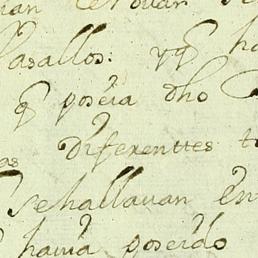 Vasallos: yq̃ ha
q̃ poseia dho
Diferenttes t
as
se hallauan En
hauia poseido